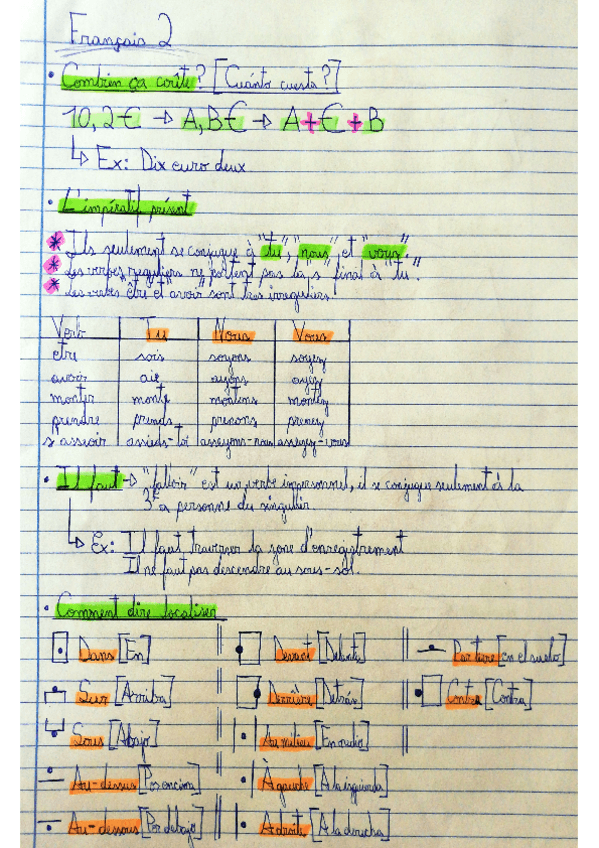 Français 2
• Combien ça coûte? [Cuánto cuesta?]
10,2€ → A,B€ → A+€+B
↳ Ex: Dix euro deux
• L'impératif présent
* Ils seulement se conjugue à "tu", "nous", et "vous".
* Les verbes reguliers ne portent pas la "s" final à "tu".
* Les verbes "être et avoir" sont tres irreguliers.
Verb Tu Nous Vous
etre sois soyons soyez
avoir aie ayons ayez
monter monte montons montez
prendre prends prenons prenez
s'asseoir assieds-toi asseyons-nous asseyez-vous
• Il faut → "falloir" est un verbe impersonnel, il se conjugue seulement à la
3e a personne du singulier.
↳ Ex: Il faut traverser la zone d'enregistrement
Il ne faut pas descendre au sous-sol.
• Comment dire localiser
Dans [En] || Devant [Delante] || Par terre [en el suelo]
Sur [Arriba] || Derrière [Detrás] || Contre [Contra]
Sous [Abajo] || Au milieu [En medio] ||
Au-dessus [Por encima] || À gauche [A la izquierda]
Au-dessous [Por debajo] || A droite [A la derecha]